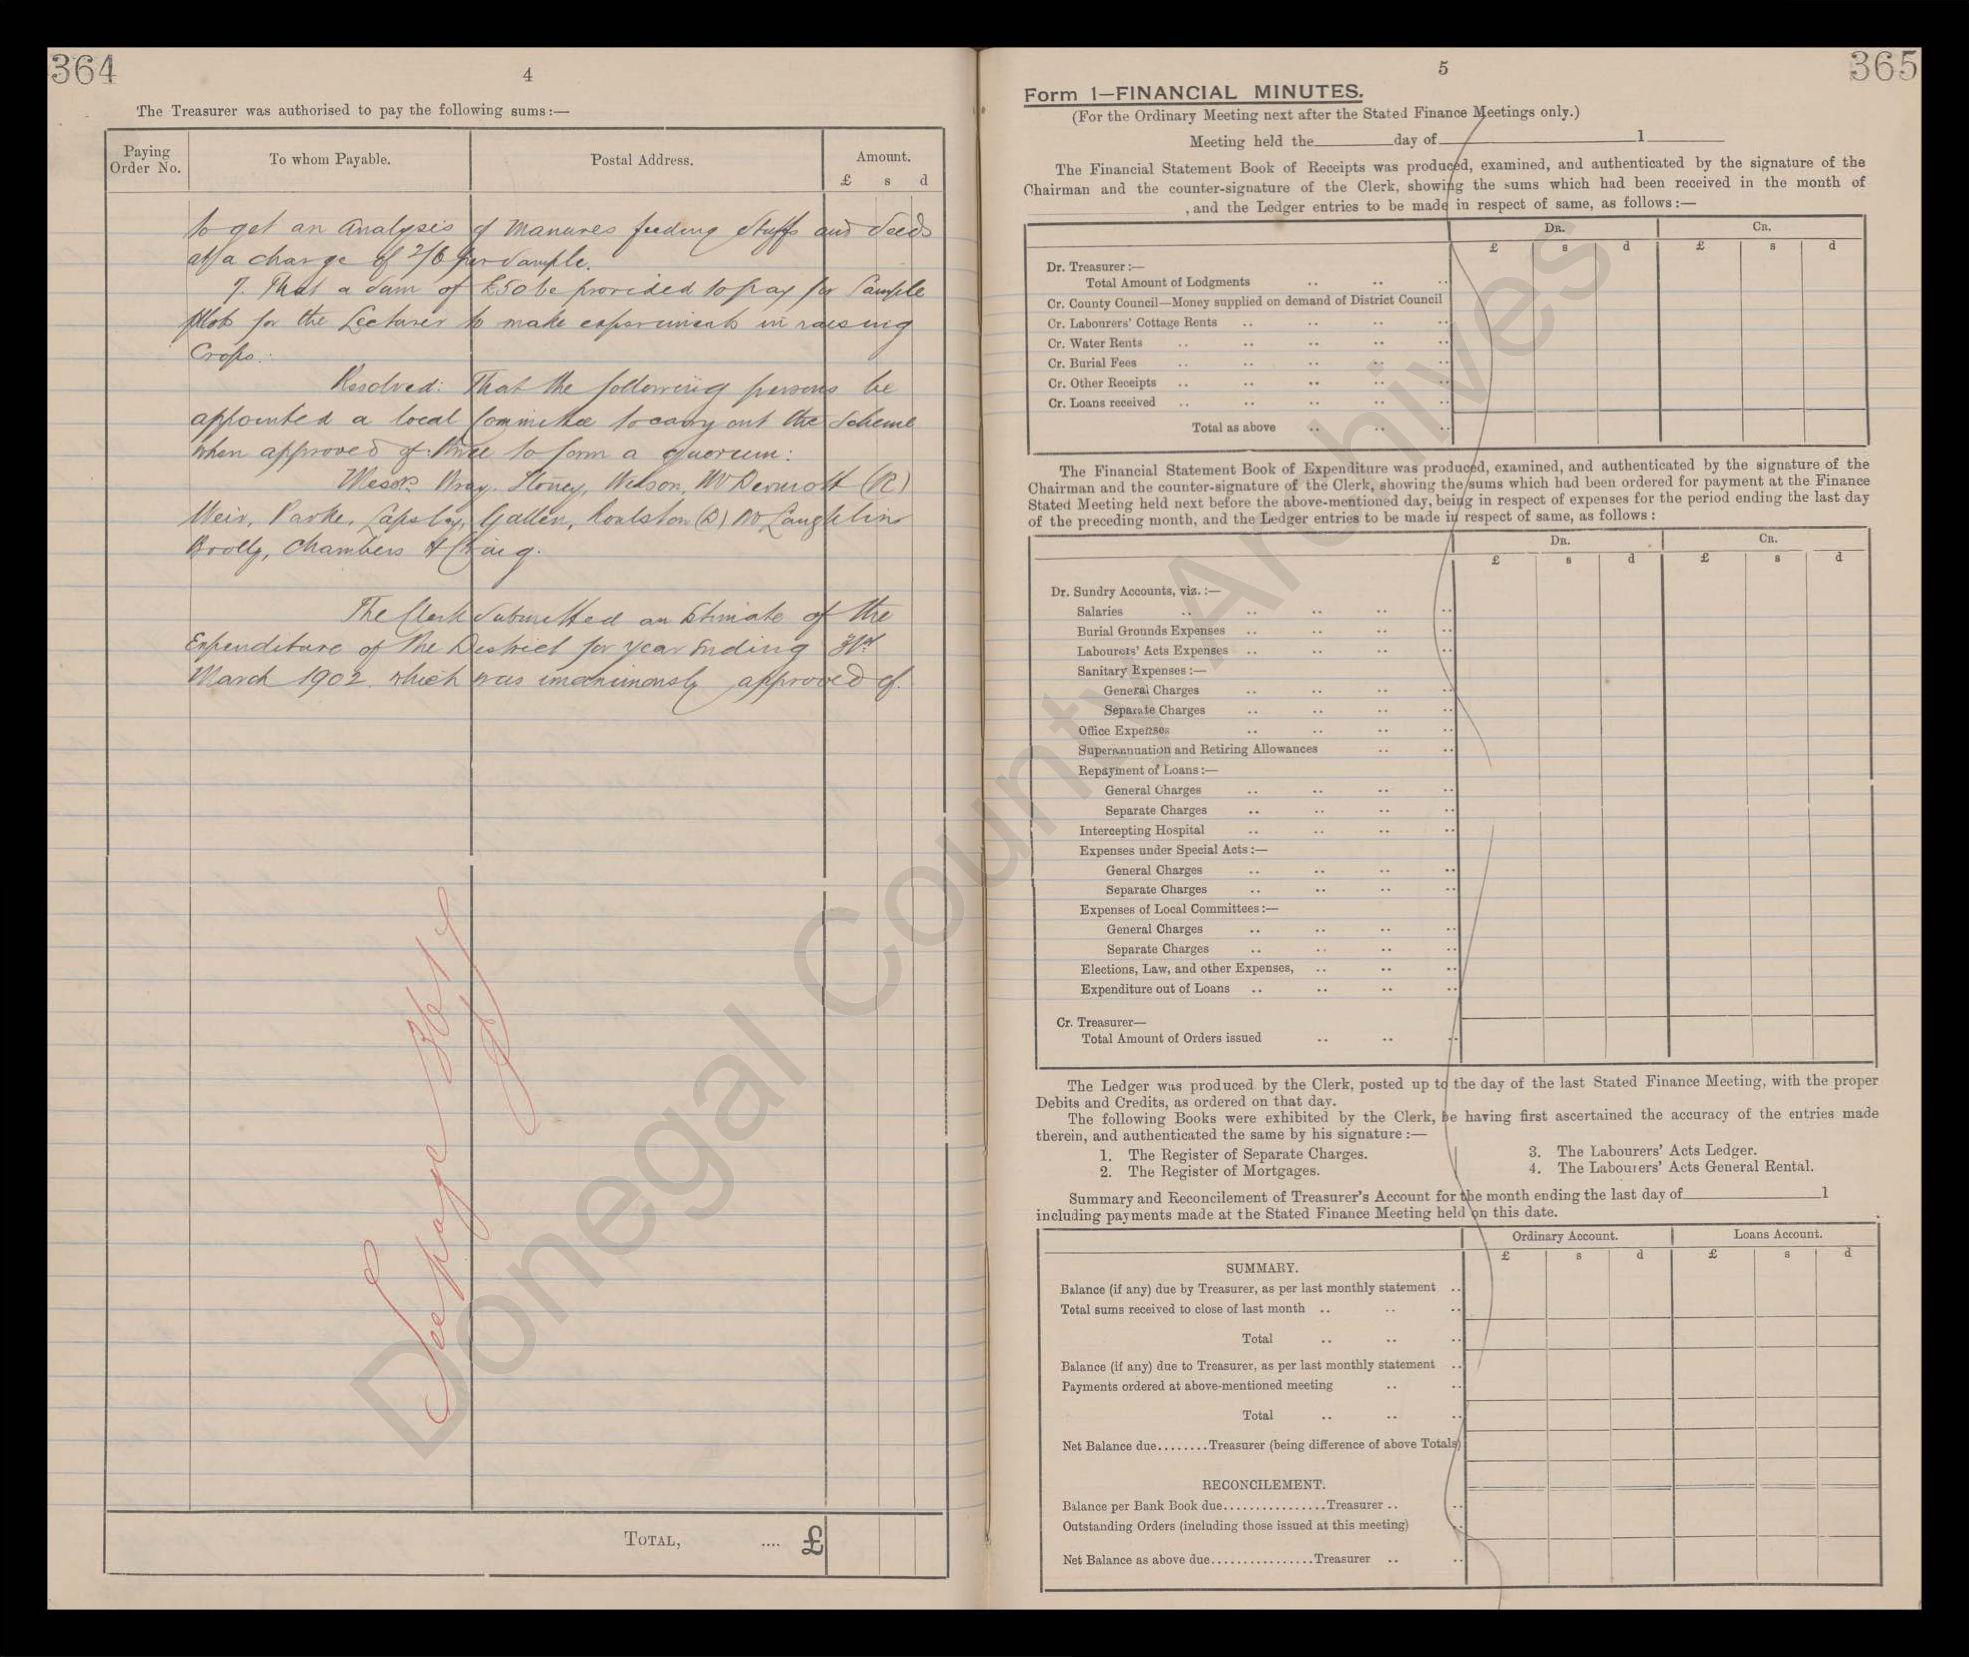 364
4
The Treasurer was authorised to pay the following sums:—
Paying Order No.
To whom Payable.
Postal Address.
Amount.
£ s d
to get an Analysis of Manures feeding Stuffs and Seeds
at a charge of 2/6 per sample.
7. That a sum of £50 be provided to pay for Sample
plots for the Lecturer to make experiments in raising
Crops.
Resolved: That the following persons be
appointed a local Committee to carry out the Scheme
when approved of. Three to form a quorum:
Messrs. Bray, Stoney, Wilson, McDermott (R)
Weir, Parke, Gallen, Roulston (D) McLaughlin
Brolly, Chambers & Craig.
The Clerk submitted an Estimate of the
Expenditure of the District for year Ending 31st
March 1902 which was unanimously approved of.
See page 367
TOTAL, .... £
365
5
Form 1—FINANCIAL MINUTES.
(For the Ordinary Meeting next after the Stated Finance Meetings only.)
Meeting held the day of 1
The Financial Statement Book of Receipts was produced, examined, and authenticated by the signature of the
Chairman and the counter-signature of the Clerk, showing the sums which had been received in the month of
, and the Ledger entries to be made in respect of same, as follows:—
DR. CR.
£ s d £ s d
Dr. Treasurer:—
Total Amount of Lodgments .. .. ..
Cr. County Council—Money supplied on demand of District Council
Cr. Labourers' Cottage Rents .. .. .. ..
Cr. Water Rents .. .. .. .. ..
Cr. Burial Fees .. .. .. .. ..
Cr. Other Receipts .. .. .. .. ..
Cr. Loans received .. .. .. .. ..
Total as above .. .. ..
The Financial Statement Book of Expenditure was produced, examined, and authenticated by the signature of the
Chairman and the counter-signature of the Clerk, showing the sums which had been ordered for payment at the Finance
Stated Meeting held next before the above-mentioned day, being in respect of expenses for the period ending the last day
of the preceding month, and the Ledger entries to be made in respect of same, as follows:
DR. CR.
£ s d £ s d
Dr. Sundry Accounts, viz.:—
Salaries .. .. .. .. ..
Burial Grounds Expenses .. .. .. ..
Labourers' Acts Expenses .. .. .. ..
Sanitary Expenses:—
General Charges .. .. .. ..
Separate Charges .. .. .. ..
Office Expenses .. .. .. ..
Superannuation and Retiring Allowances .. ..
Repayment of Loans:—
General Charges .. .. .. ..
Separate Charges .. .. .. ..
Intercepting Hospital .. .. .. ..
Expenses under Special Acts:—
General Charges .. .. .. ..
Separate Charges .. .. .. ..
Expenses of Local Committees:—
General Charges .. .. .. ..
Separate Charges .. .. .. ..
Elections, Law, and other Expenses, .. .. ..
Expenditure out of Loans .. .. .. ..
Cr. Treasurer—
Total Amount of Orders issued .. .. ..
The Ledger was produced by the Clerk, posted up to the day of the last Stated Finance Meeting, with the proper
Debits and Credits, as ordered on that day.
The following Books were exhibited by the Clerk, he having first ascertained the accuracy of the entries made
therein, and authenticated the same by his signature:—
1. The Register of Separate Charges.
2. The Register of Mortgages.
3. The Labourers' Acts Ledger.
4. The Labourers' Acts General Rental.
Summary and Reconcilement of Treasurer's Account for the month ending the last day of 1
including payments made at the Stated Finance Meeting held on this date.
Ordinary Account. Loans Account.
£ s d £ s d
SUMMARY.
Balance (if any) due by Treasurer, as per last monthly statement ..
Total sums received to close of last month .. .. ..
Total .. .. ..
Balance (if any) due to Treasurer, as per last monthly statement ..
Payments ordered at above-mentioned meeting .. ..
Total .. .. ..
Net Balance due........Treasurer (being difference of above Totals)
RECONCILEMENT.
Balance per Bank Book due................Treasurer .. ..
Outstanding Orders (including those issued at this meeting) ..
Net Balance as above due................Treasurer .. ..
Donegal County Archives